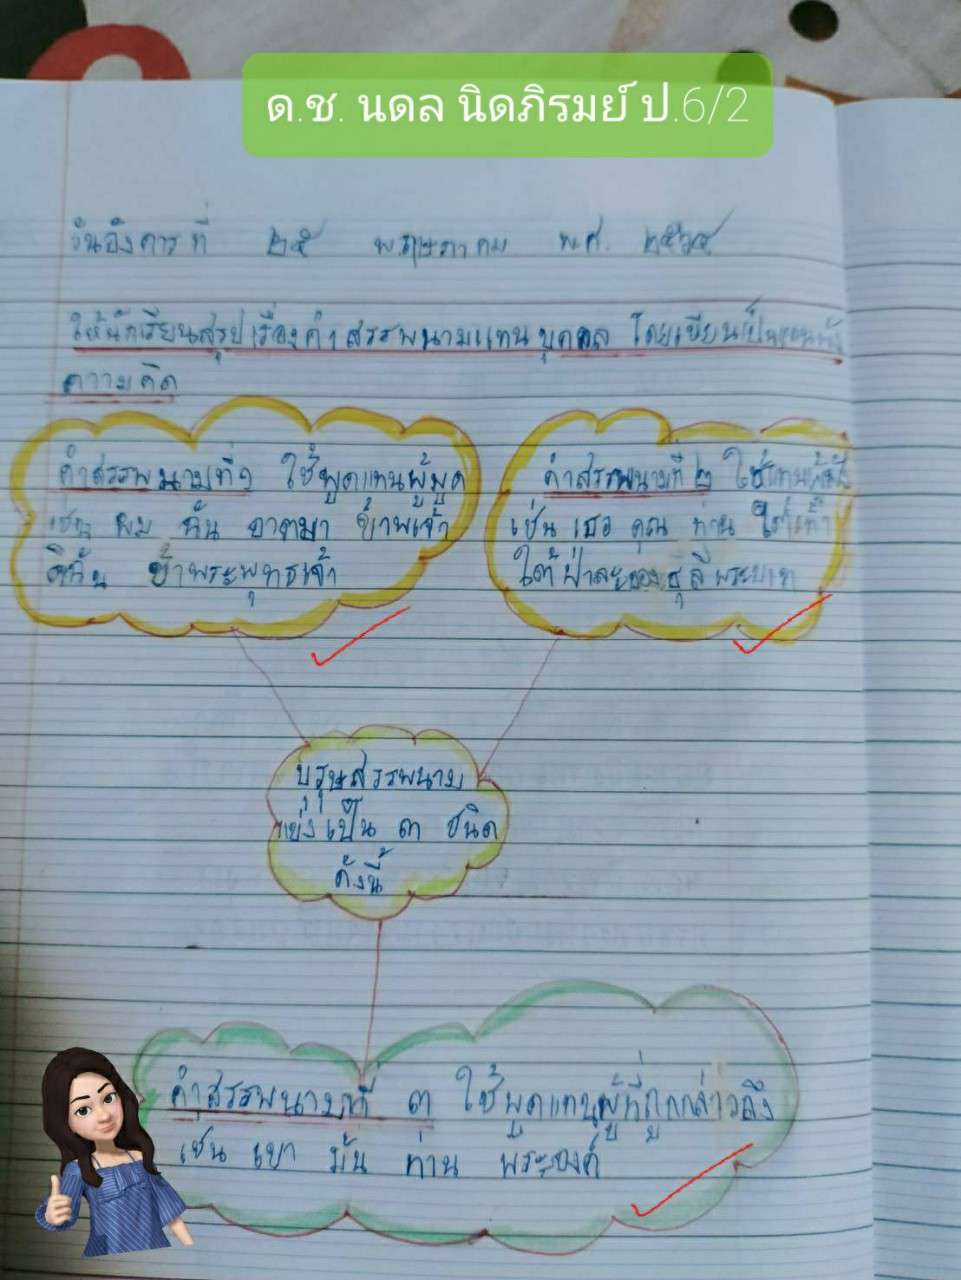 ด.ช. นดล นิดภิรมย์ ป.6/2
วันอังคารที่ ๒๕ พฤษภาคม พ.ศ. ๒๕๖๔
ให้นักเรียนสรุปเรื่องคำสรรพนามแทนบุคคล โดยเขียนเป็นแผนผัง
ความคิด
คำสรรพนามที่๑ ใช้พูดแทนผู้พูด
เช่น ผม ฉัน อาตมา ข้าพเจ้า
ดิฉัน ข้าพระพุทธเจ้า
คำสรรพนามที่ ๒ ใช้แทนผู้ฟัง
เช่น เธอ คุณ ท่าน ใต้เท้า
ใต้ฝ่าละอองธุลีพระบาท
บุรุษสรรพนาม
แบ่งเป็น ๓ ชนิด
ดังนี้
คำสรรพนามที่ ๓ ใช้พูดแทนผู้ที่ถูกกล่าวถึง
เช่น เขา มัน ท่าน พระองค์